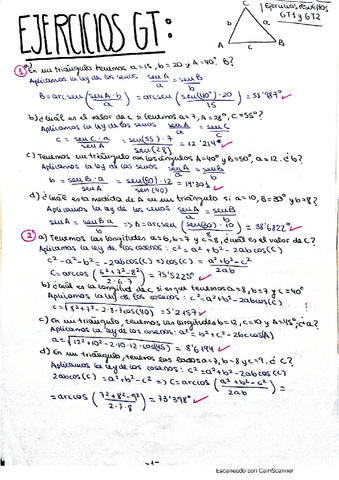 EJERCICIOS GT:
Ejercicios resueltos
GT1 y GT2
C
b
a
A
c
B
1 En un triángulo tenemos a=15, b=20 y A=40º. B?
Aplicamos la ley de los senos senA/a = senB/b
B=arcsen(senA·b/a)=arcsen(sen(40º)·20/15)=58'987º
b) ¿Cuál es el valor de c si tenemos a=7, A=28º, C=55º?
Aplicamos la ley de los senos senA/a = senC/c
c = senC·a/senA = sen(55)·7/sen(28) = 12'214º
c) Tenemos un triángulo con los ángulos A=40º y B=50º, a=12. ¿b?
Aplicamos la ley de los senos senA/a = senB/b
b = senB·a/senA = sen(50)·12/sen(40) = 14'301
d) ¿Cuál es la medida de A en un triángulo si a=10, B=30º y b=8?
Aplicamos la ley de los senos senA/a = senB/b
senA = senB·a/b ⇒ A=arcsen(sen(30)·10/8) = 38'6822º
2 a) Tenemos las longitudes a=6, b=7 y c=8, ¿cuál es el valor de C?
Aplicamos, ley de los cosenos: c²=a²+b²-2abcos(C)
c²-a²-b²=-2abcos(C) ⇒ cos(C) = a²+b²-c²/2ab
C=arccos(6²+7²-8²/2·6·7) = 75'5225º
b) ¿Cuál es la longitud de c si que tenemos a=8, b=7 y C=40º
Aplicamos la ley de los cosenos: c²=a²+b²-2abcos(C)
c=√8²+7²-2·8·7cos(40) = 5'2157
c) En un triángulo, tenemos las longitudes b=12, c=10 y A=45º, ¿a?
Aplicamos la ley de los cosenos: a²=b²+c²-2bccos(A)
a=√12²+10²-2·10·12·cos(45) = 8'6194
d) En un triángulo, tenemos los lados a=7, b=8 y c=9. ¿C?
Aplicamos la ley de los cosenos: c²=a²+b²-2abcos(C)
2abcos(C)=a²+b²-c² ⇒ C=arccos(a²+b²-c²/2ab)=
=arccos(7²+8²-9²/2·7·8)=73'398º
-1-
Escaneado con CamScanner